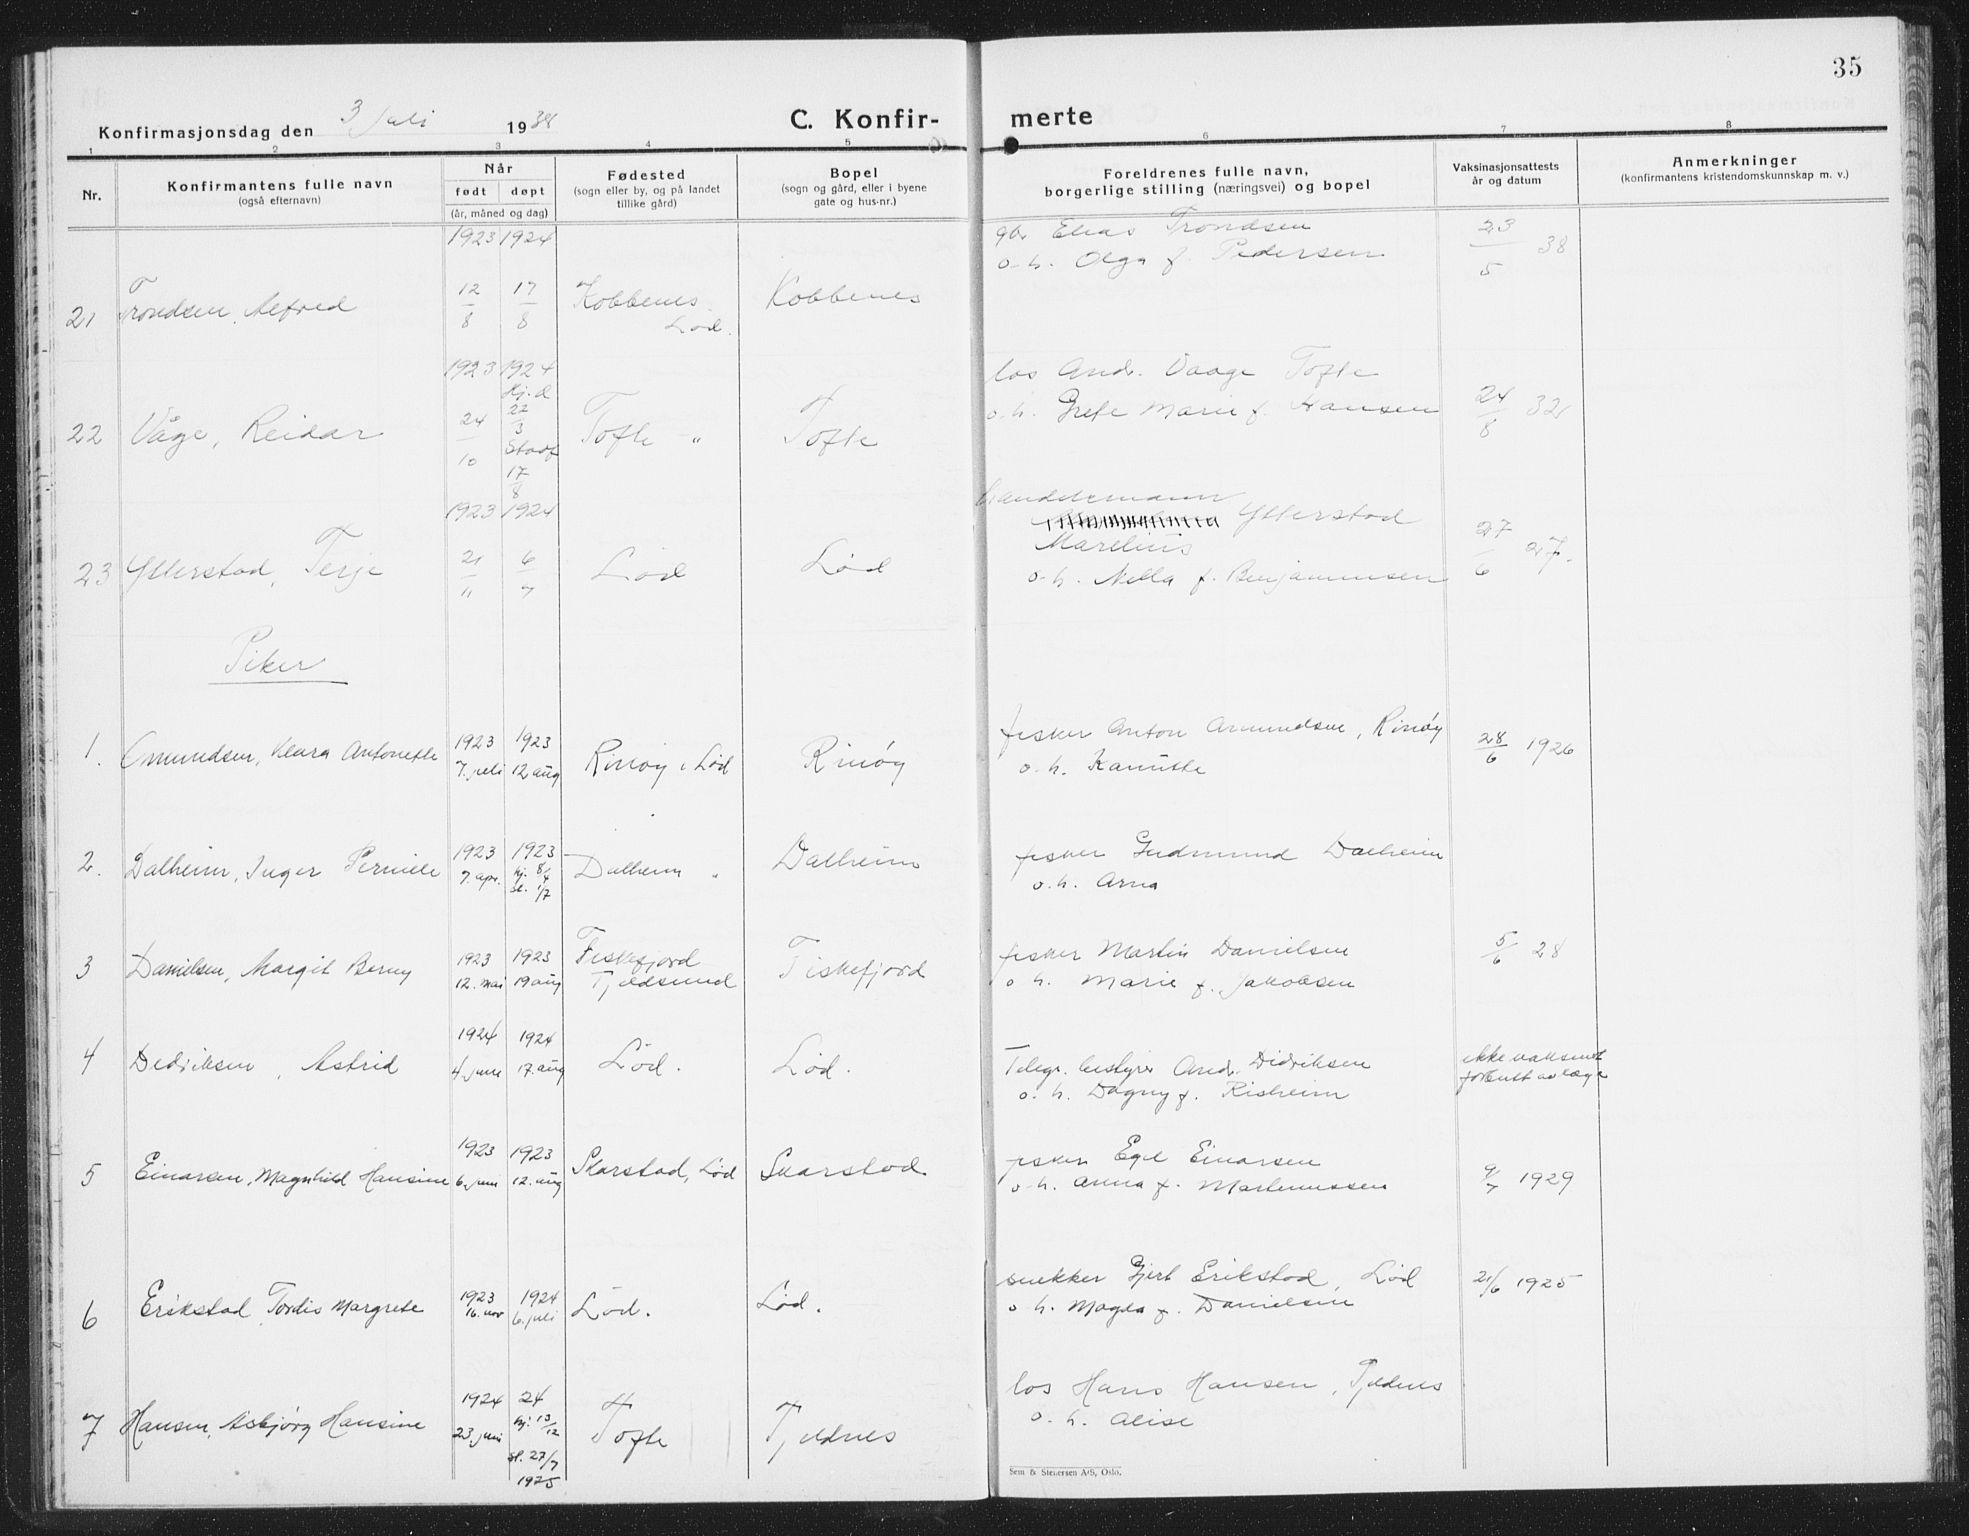 35
Konfirmasjonsdag den 3 Juli 1938
C. Konfir-
merte
1 2 3 4 5 6 7 8
Nr.
Konfirmantens fulle navn
(også efternavn)
Når
født døpt
(år, måned og dag)
Fødested
(sogn eller by, og på landet
tillike gård)
Bopel
(sogn og gård, eller i byene
gate og hus-nr.)
Foreldrenes fulle navn,
borgerlige stilling (næringsvei) og bopel
Vaksinasjonsattests
år og datum
Anmerkninger
(konfirmantens kristendomskunnskap m. v.)
1923 1924
gbr Elias Trondsen 23/5 38
o. h. Olga f. Pedersen
21 Trondsen, Alfred 12/8 17/8 Kobbenes Kobbenes
Lød.
1923 1924
Hj. d
22/3
Stadf
17/8
22 Våge, Reidar 24/10 Tofte " Tofte
los Andr. Vaage Tofte
o. h. Grete Marie f. Hansen 24/8 32
1923 1924
23 Ytterstad, Terje 21/11 6/7 Lød Lød
handelsmann
Ytterstad
Marelius 27/6 27.
o. h. Nella f. Benjaminsen
Piker
1. Amundsen, Klara Antonette 1923 7. juli 1923 12 aug Rinøy i Lød Rinøy
fisker Anton Amundsen, Rinøy 28/6 1926
o. h. Kanutte
2. Dalheim, Inger Pernille 1923 7. apr. 1923 hj. 8/4 st. 1/7 Dalheim " Dalheim
fisker Gudmund Dalheim
o. h. Arna
3 Danielsen, Margit Berny 1923 12. mai 1923 19 aug Fiskefjord Tjeldsund Fiskefjord
fisker Martin Danielsen 5/6 28
o h. Marie f. Jakobsen
4 Dedriksen, Astrid 1924 4. juni 1924 17. aug Lød. Lød.
Telegr. bestyrer Andr. Didriksen ikke vaksinert
o. h. Dagny f. Risheim forbudt av læge
5 Einarsen, Magnhild Hansine 1923 6. juni 1923 12. aug Skarstad, Lød Skarstad
fisker Egil Einarsen
o. h. Anna f. Martinussen 9/7 1929
6 Erikstad, Tordis Margrete 1923 16. nov 1924 6. juli Lød. Lød.
snekker Gjert Erikstad, Lød 21/6 1925
o. h. Magda f. Danielsen
7 Hansen, Asbjørg Hansine 1924 23. juni 24 hj. 13/12 st. 27/7 1925 Tofte Tjeldnes
los Hans Hansen, Tjeldnes
o. h. Alise
Sem & Stenersen A/S, Oslo.